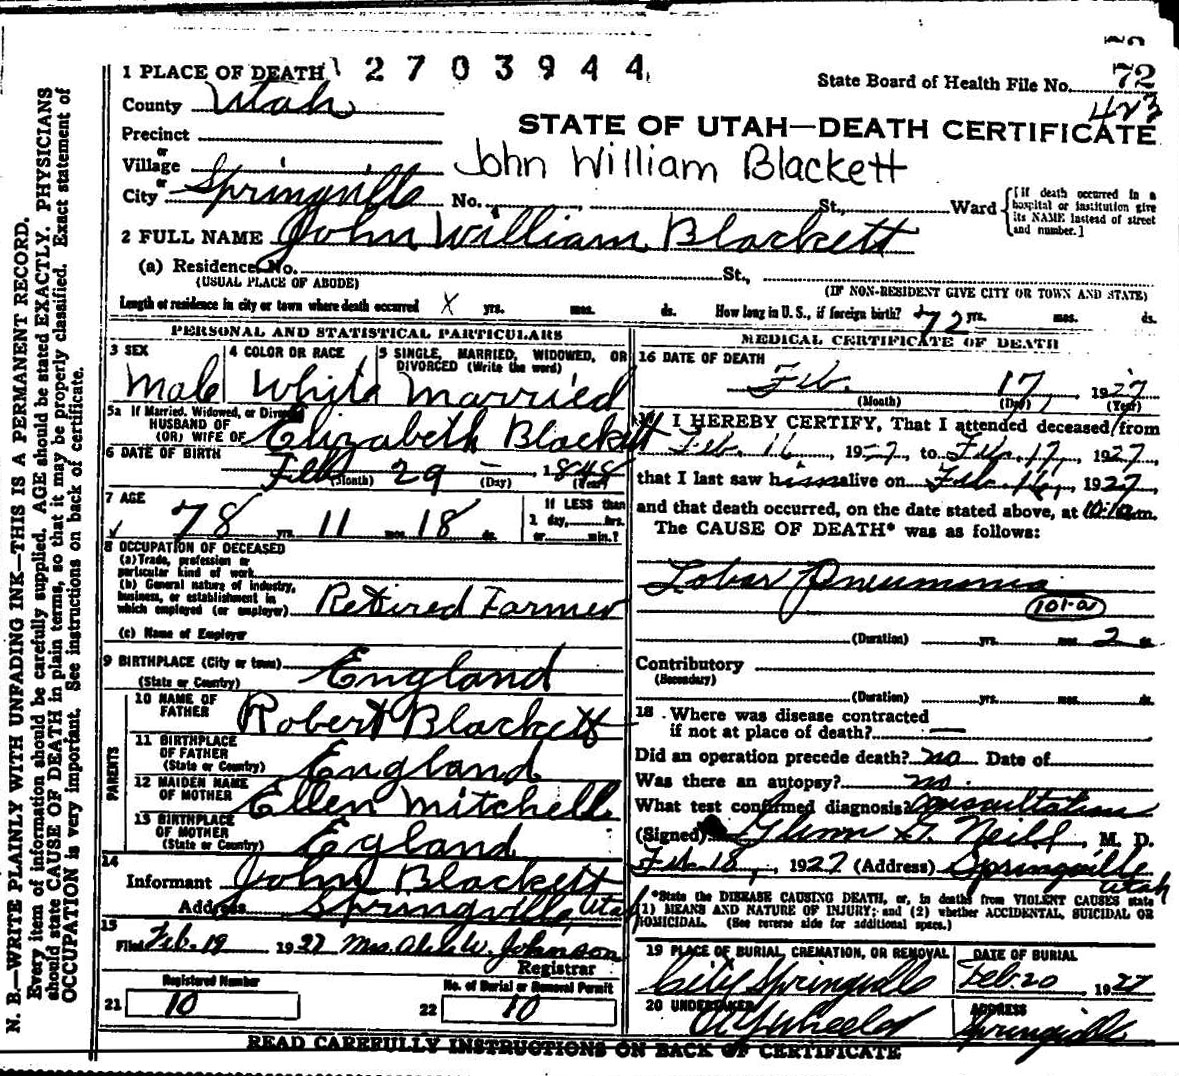 72
1 PLACE OF DEATH 2703944
State Board of Health File No. 423
County Utah
STATE OF UTAH—DEATH CERTIFICATE
Precinct
or
Village
John William Blackett
or
City Springville No. St., Ward
[If death occurred in a hospital or institution give its NAME instead of street and number.]
2 FULL NAME John William Blackett
(a) Residence. No. St.,
(USUAL PLACE OF ABODE) (IF NON-RESIDENT GIVE CITY OR TOWN AND STATE)
Length of residence in city or town where death occurred X yrs. mos. ds. How long in U. S., if foreign birth? 72 yrs. mos. ds.
PERSONAL AND STATISTICAL PARTICULARS
3 SEX
Male
4 COLOR OR RACE
White
5 SINGLE, MARRIED, WIDOWED, OR DIVORCED (Write the word)
Married
5a If Married, Widowed, or Divorced
HUSBAND OF
(OR) WIFE OF Elizabeth Blackett
6 DATE OF BIRTH
Feb 29 - 1848
(Month) (Day) (Year)
7 AGE
78 yrs. 11 mos. 18 ds.
If LESS than
1 day, hrs.
or min.?
8 OCCUPATION OF DECEASED
(a) Trade, profession or
particular kind of work
(b) General nature of industry,
business, or establishment in
which employed (or employer) Retired Farmer
(c) Name of Employer
9 BIRTHPLACE (City or town)
(State or Country) England
PARENTS
10 NAME OF
FATHER Robert Blackett
11 BIRTHPLACE
OF FATHER
(State or Country) England
12 MAIDEN NAME
OF MOTHER Ellen Mitchell
13 BIRTHPLACE
OF MOTHER
(State or Country) Egland
14
Informant John Blackett
Address Springville, Utah
15
Filed Feb. 19 1927 Mrs. W. Johnson
Registrar
Registered Number
21 10
No. of Burial or Removal Permit
22 10
MEDICAL CERTIFICATE OF DEATH
16 DATE OF DEATH
Feb. 17, 1927
(Month) (Day) (Year)
17 I HEREBY CERTIFY, That I attended deceased from
Feb. 16, 1927, to Feb. 17, 1927,
that I last saw him alive on Feb. 16, 1927
and that death occurred, on the date stated above, at 10:10 a.m.
The CAUSE OF DEATH* was as follows:
Lobar Pneumonia
101-a
(Duration) yrs. mos. 2 ds.
Contributory
(Secondary)
(Duration) yrs. mos. ds.
18 Where was disease contracted
if not at place of death? —
Did an operation precede death? no Date of
Was there an autopsy? no.
What test confirmed diagnosis? Auscultation
(Signed) Glenn G. Neill, M. D.
Feb. 18, 1927 (Address) Springville Utah
*State the DISEASE CAUSING DEATH, or, in deaths from VIOLENT CAUSES state
(1) MEANS AND NATURE OF INJURY; and (2) whether ACCIDENTAL, SUICIDAL OR
HOMICIDAL. (See reverse side for additional space.)
19 PLACE OF BURIAL, CREMATION, OR REMOVAL
City Springville
DATE OF BURIAL
Feb. 20 1927
20 UNDERTAKER
Wheeler
ADDRESS
Springville
READ CAREFULLY INSTRUCTIONS ON BACK OF CERTIFICATE
N. B.—WRITE PLAINLY WITH UNFADING INK—THIS IS A PERMANENT RECORD.
Every item of information should be carefully supplied. AGE should be stated EXACTLY. PHYSICIANS
should state CAUSE OF DEATH in plain terms, so that it may be properly classified. Exact statement of
OCCUPATION is very important. See instructions on back of certificate.